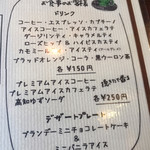 お食事のお客様
ドリンク
コーヒー・エスプレッソ・カプチーノ
アイスコーヒー・アイスカフェラテ
ダージリンティ・キャラメルティ
ローズヒップ & ハイビスカスティ
ブラッドオレンジ・コーラ・黒ウーロン茶
各 ¥150円
プレミアムアイスコーヒー
プレミアムアイスカフェラテ
高知ゆずソーダ
各 ¥250円
デザートプレート
ブランデーミニチョコレートケーキ
&
ミニバニラアイス